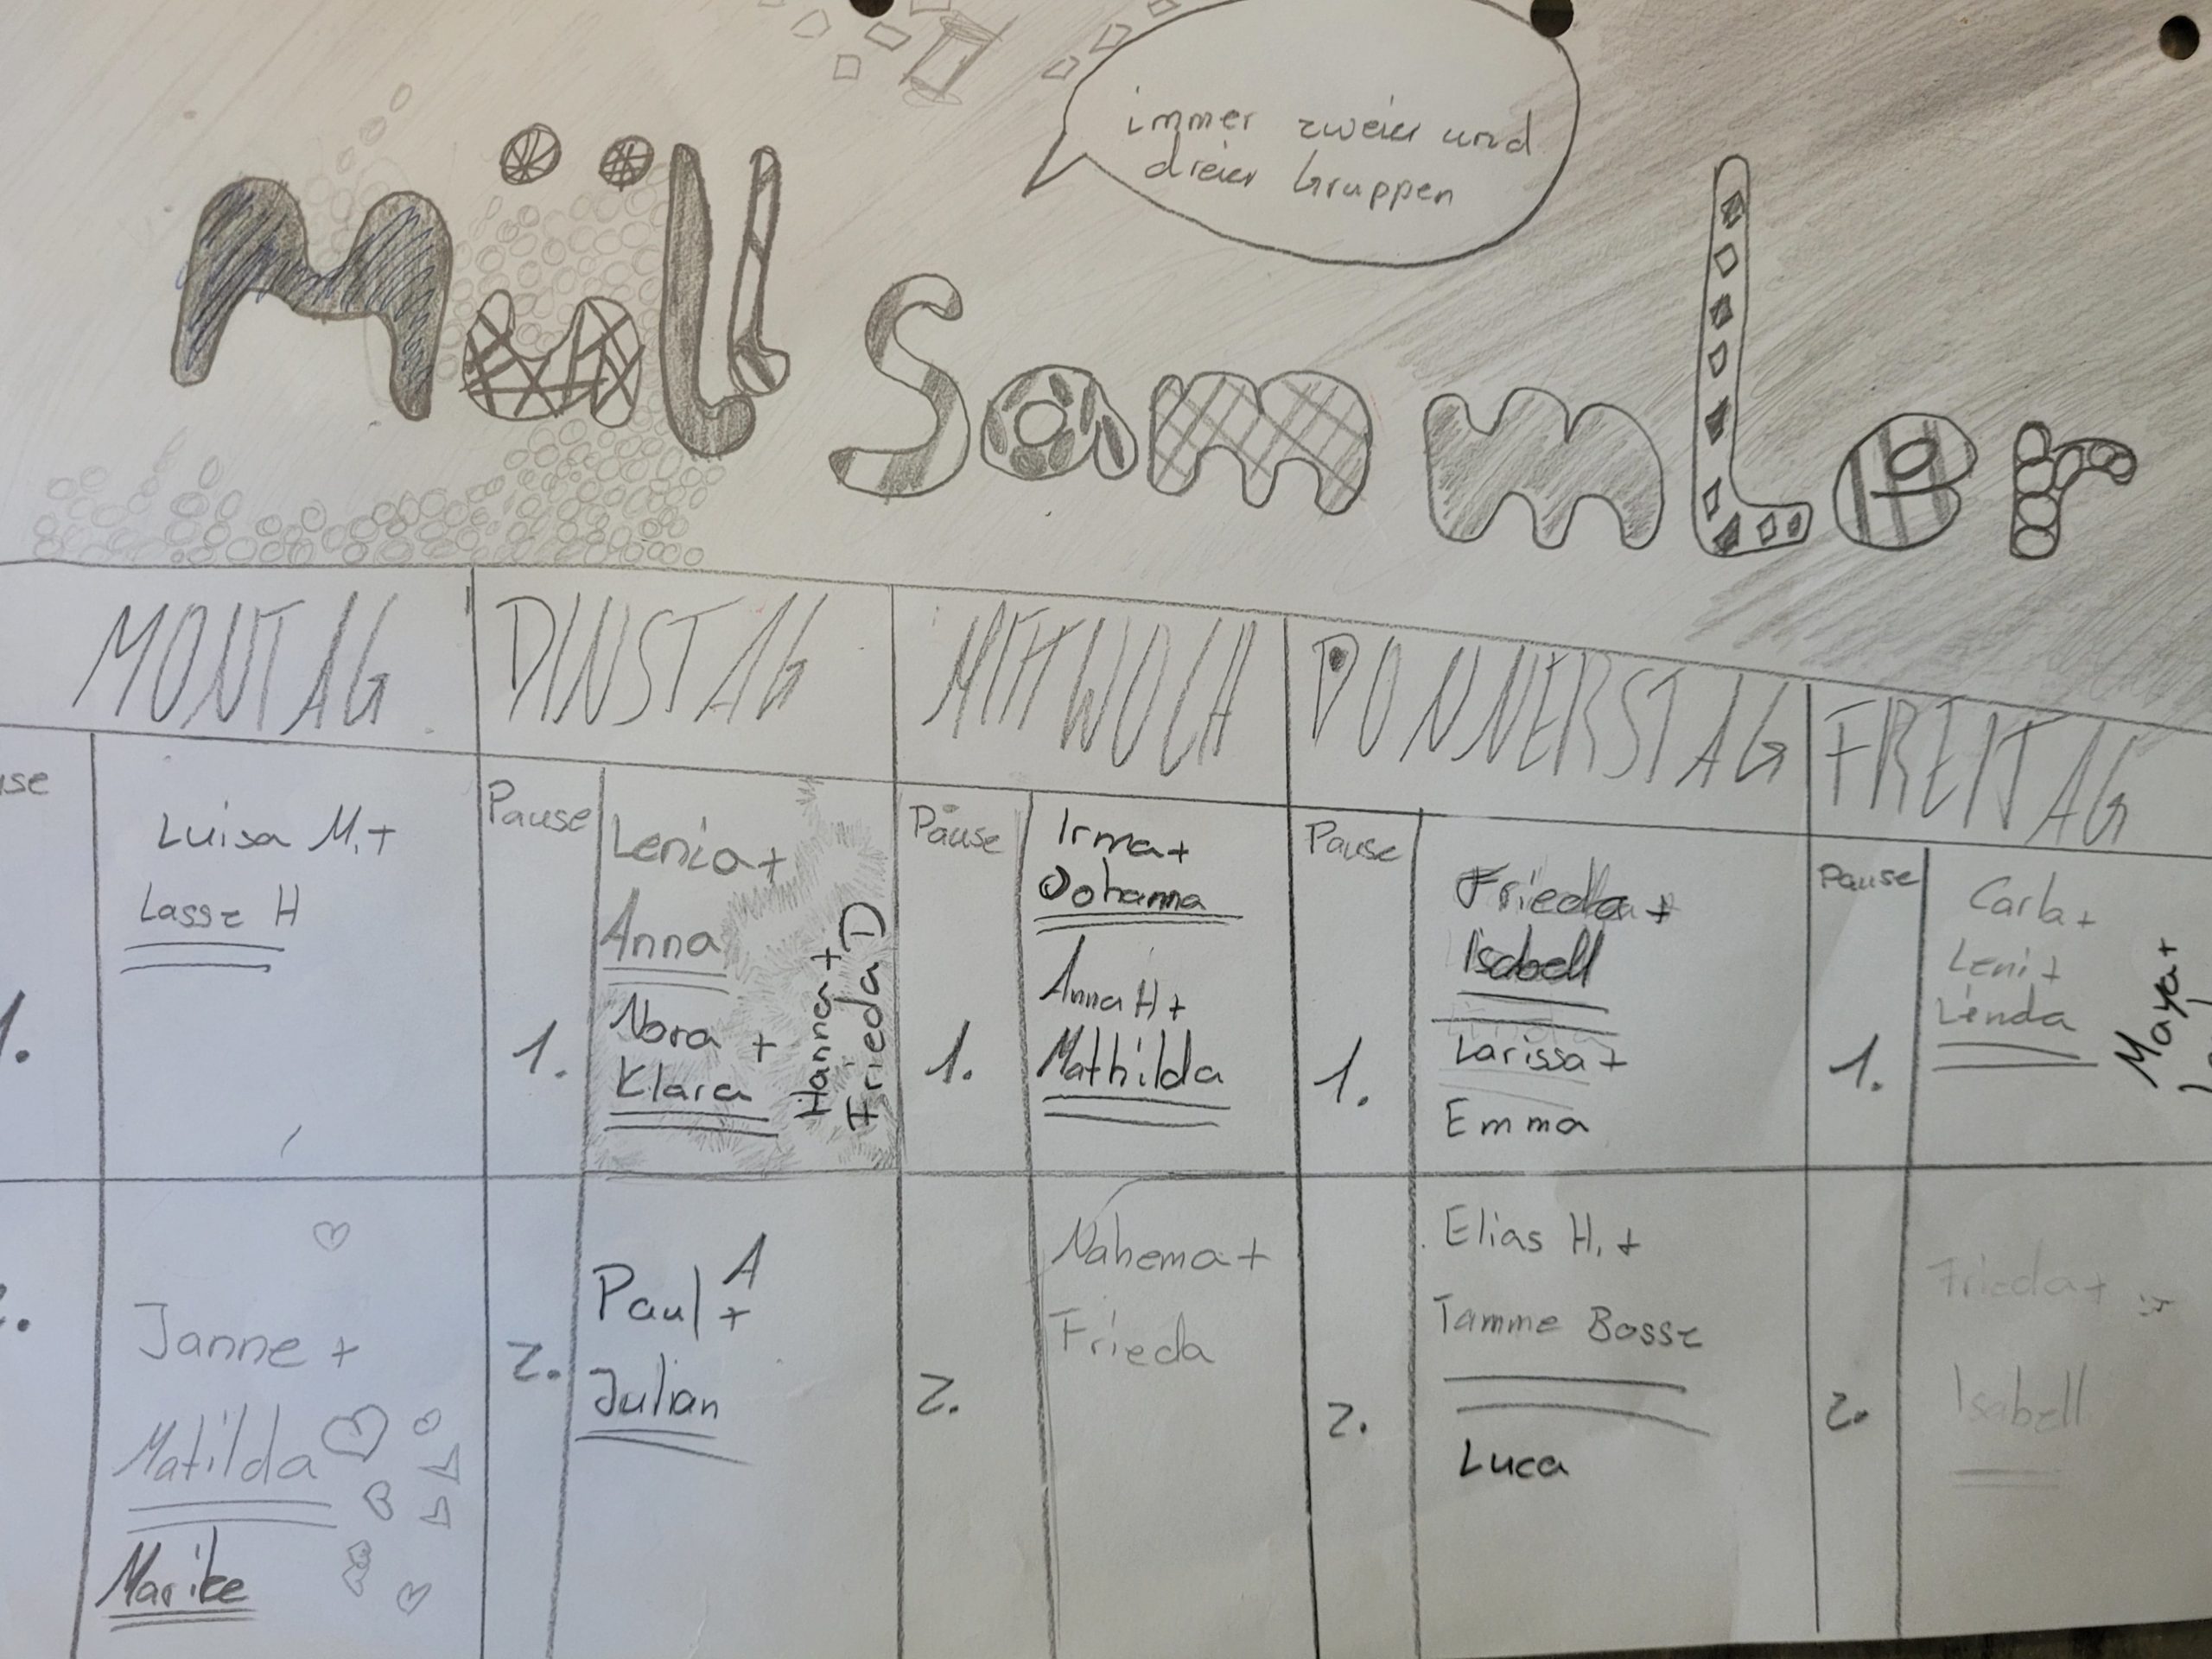 immer zweier und
dreier Gruppen
Müll Sammler
MONTAG DINSTAG MITTWOCH DONNERSTAG FREITAG
Pause
Pause
Pause
Pause
1.
Luisa M.+
Lasse H
1.
Lenia+
Anna
Nora +
Klara
Hanna+
Frieda D
1.
Irma+
Johanna
Anna H+
Mathilda
1.
Frieda +
Isabell
Larissa+
Emma
1.
Carla+
Leni+
Linda
Maya+
Janne +
Matilda
Marike
2.
Paul A
+
Julian
2.
Nahema+
Frieda
2.
Elias H. +
Tamme Bosse
Luca
2.
Frieda+
Isabell